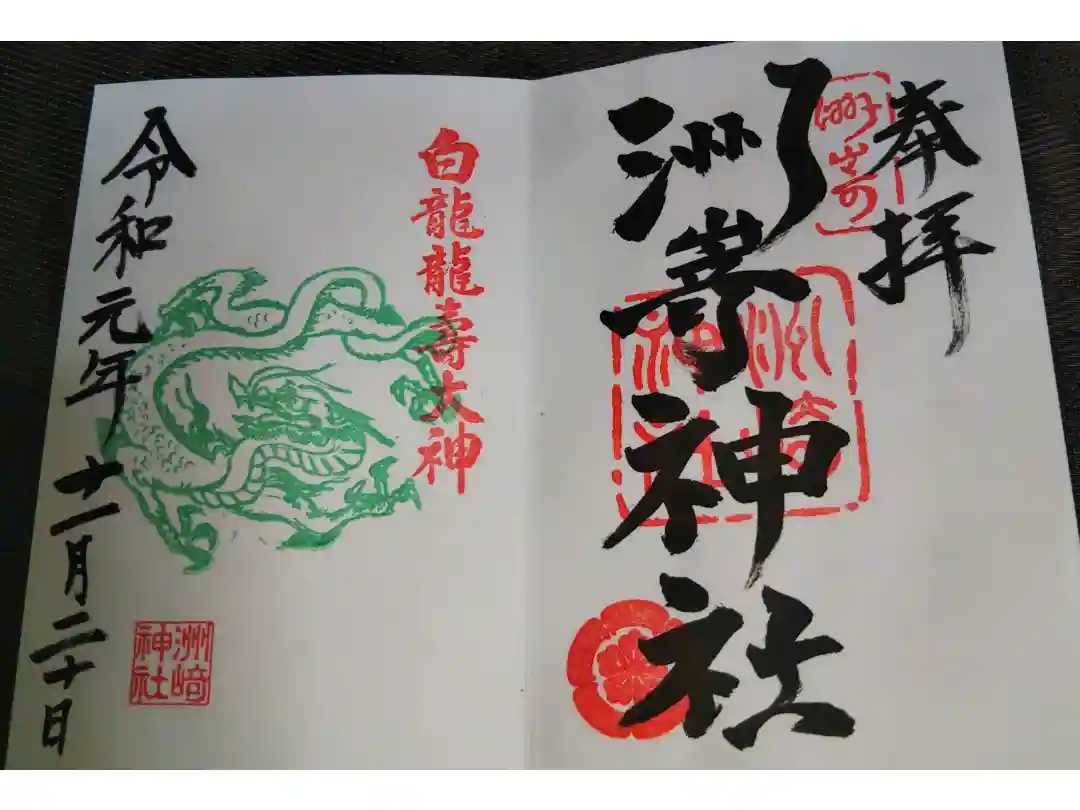 奉拝
洲嵜神社
洲崎
洲崎神社
白龍龍壽大神
令和元年十一月二十日
洲崎神社